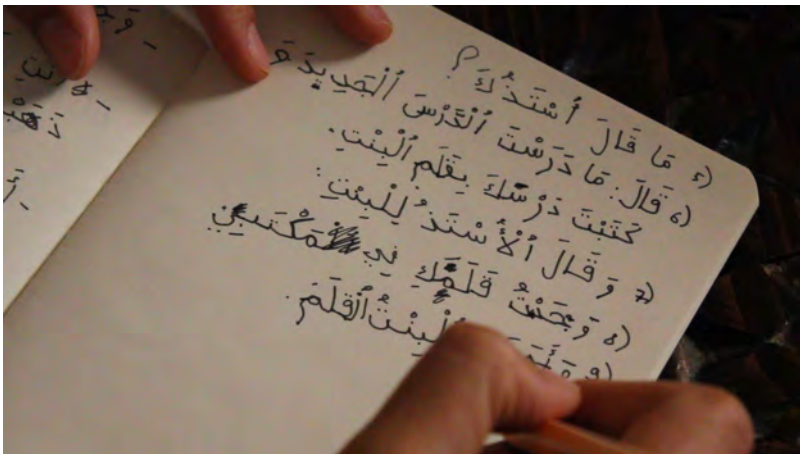 5) مَا قَالَ أُسْتَذُكَ ؟
6) قَالَ: مَا دَرَسْتَ ٱلْدَّرْسَ ٱلْجَدِيدَ وَ
كَتَبْتَ دَرْسَكَ بِقَلَمِ ٱلْبِنْتِ.
7) وَ قَالَ ٱلْأُسْتَذُ لِلْبِنْتِ:
8) وَجَدْتُ قَلَمَكِ فِي مَكْتَبِي
9) ٱلْبِنْتُ ٱلْقَلَمَ.